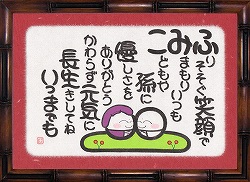 ふりそそぐ笑顔で
みまもりいつも
こどもや
孫に
優しさを
ありがとう
かわらず元気に
長生きしてね
いつまでも